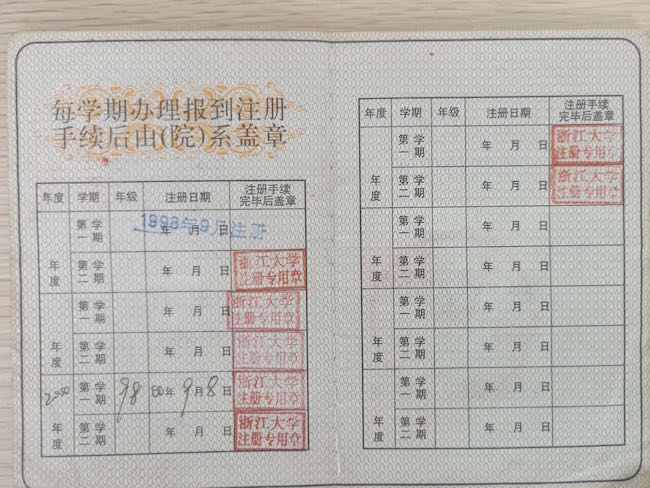 每学期办理报到注册
手续后由(院)系盖章
年度 学期 年级 注册日期 注册手续完毕后盖章
年度 第一学期 年 月 日 1998年9月注册
第二学期 年 月 日 浙江大学注册专用章
年度 第一学期 年 月 日 浙江大学注册专用章
第二学期 年 月 日 浙江大学注册专用章
2000年度 第一学期 98 00年9月8日 浙江大学注册专用章
第二学期 年 月 日 浙江大学注册专用章
年度 学期 年级 注册日期 注册手续完毕后盖章
年度 第一学期 年 月 日 浙江大学注册专用章
第二学期 年 月 日 浙江大学注册专用章
年度 第一学期 年 月 日
第二学期 年 月 日
年度 第一学期 年 月 日
第二学期 年 月 日
年度 第一学期 年 月 日
第二学期 年 月 日